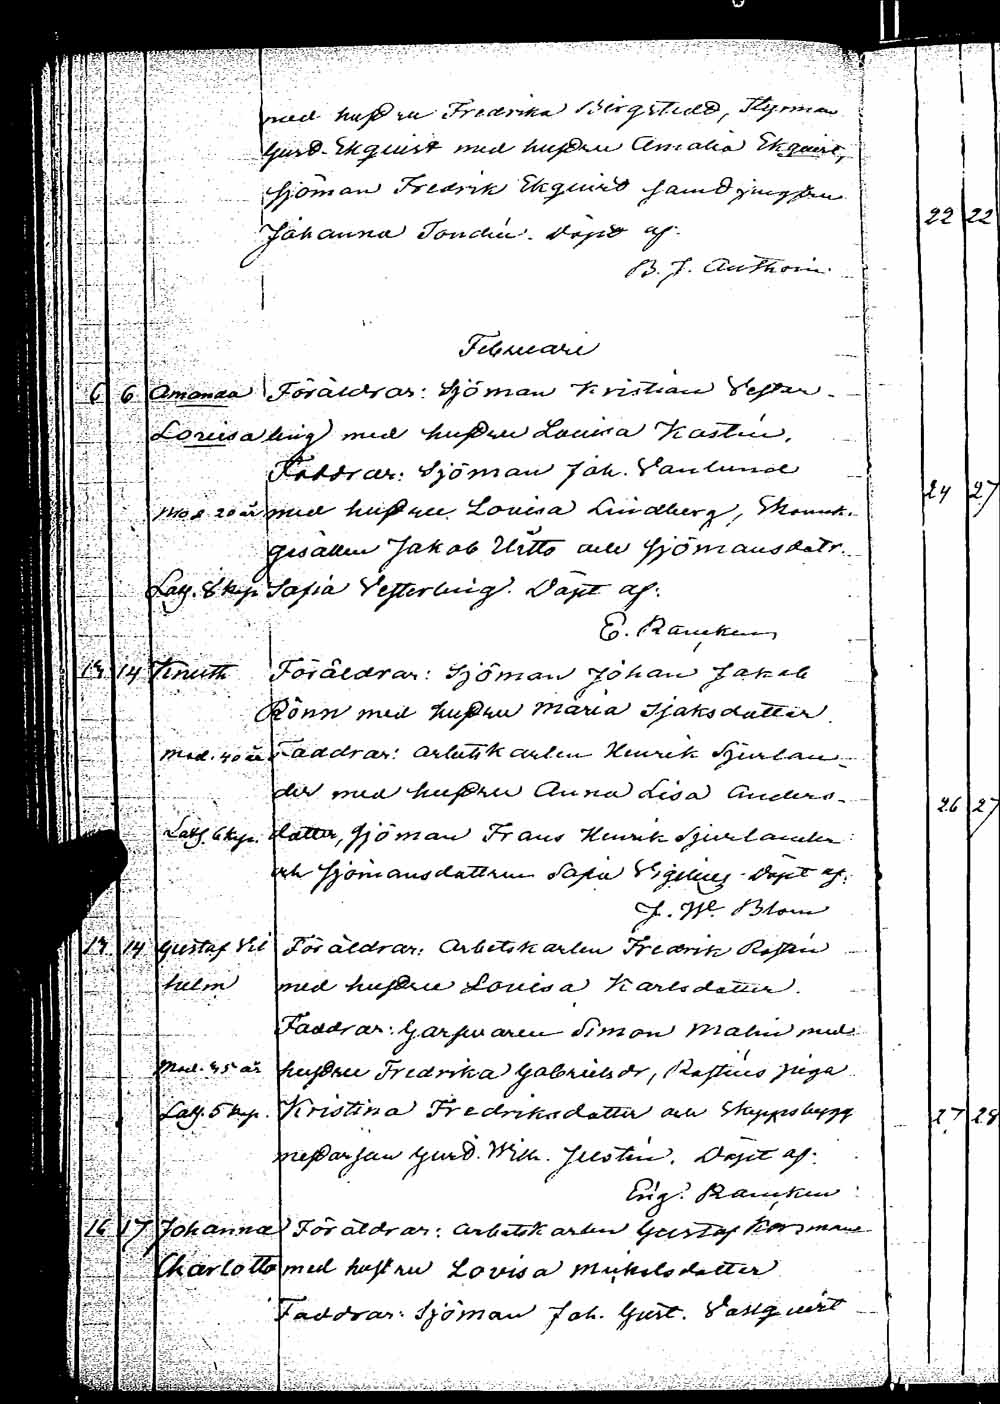 med hustru Fredrika Birgstedt, Styrman
Gust. Ekqvist med hustru Amalia Ekqvist,
sjöman Fredrik Ekqvist samt jungfru
Johanna Tondin. Döpt af.
B. J. Anthoni.
Februari
6 6 Amanda Föräldrar: Sjöman Kristian Vester-
Lovisa ling med hustru Lovisa Kastén.
Faddrar: Sjöman Joh.
Mod. 20 år med hustru Lovisa Lindberg,
gesällen Jakob och sjömansdotr.
8 kp. Sofia Vesterling. Döpt af.
E. Rancken
13 14 Knuth Föräldrar: Sjöman Johan Jakob
Rönn med hustru Maria Isaksdotter.
Mod. 40 år Faddrar: Arbetskarlen Henrik Sjurlan-
der med hustru Anna Lisa Anders-
6 kp. dotter, sjöman Frans Henrik Sjurlander
och sjömansdottren Sofia Döpt af.
J. W. Blom
13 14 Gustaf Vil Föräldrar: Arbetskarlen Fredrik
helm med hustru Lovisa Karlsdotter.
Faddrar: Garfvaren Simon Malin med
Mod. 45 år hustru Fredrika Gabrielsdr, piga
5 kp. Kristina Fredriksdotter och Skeppsbygg
mästarson Gust. Wilh. Döpt af.
Rancken
16 17 Johanna Föräldrar: Arbetskarlen Gustaf
Charlotta med hustru Lovisa Mickelsdotter
Faddrar: Sjöman Joh. Gust.
22 22
24 27
26 27
27 28